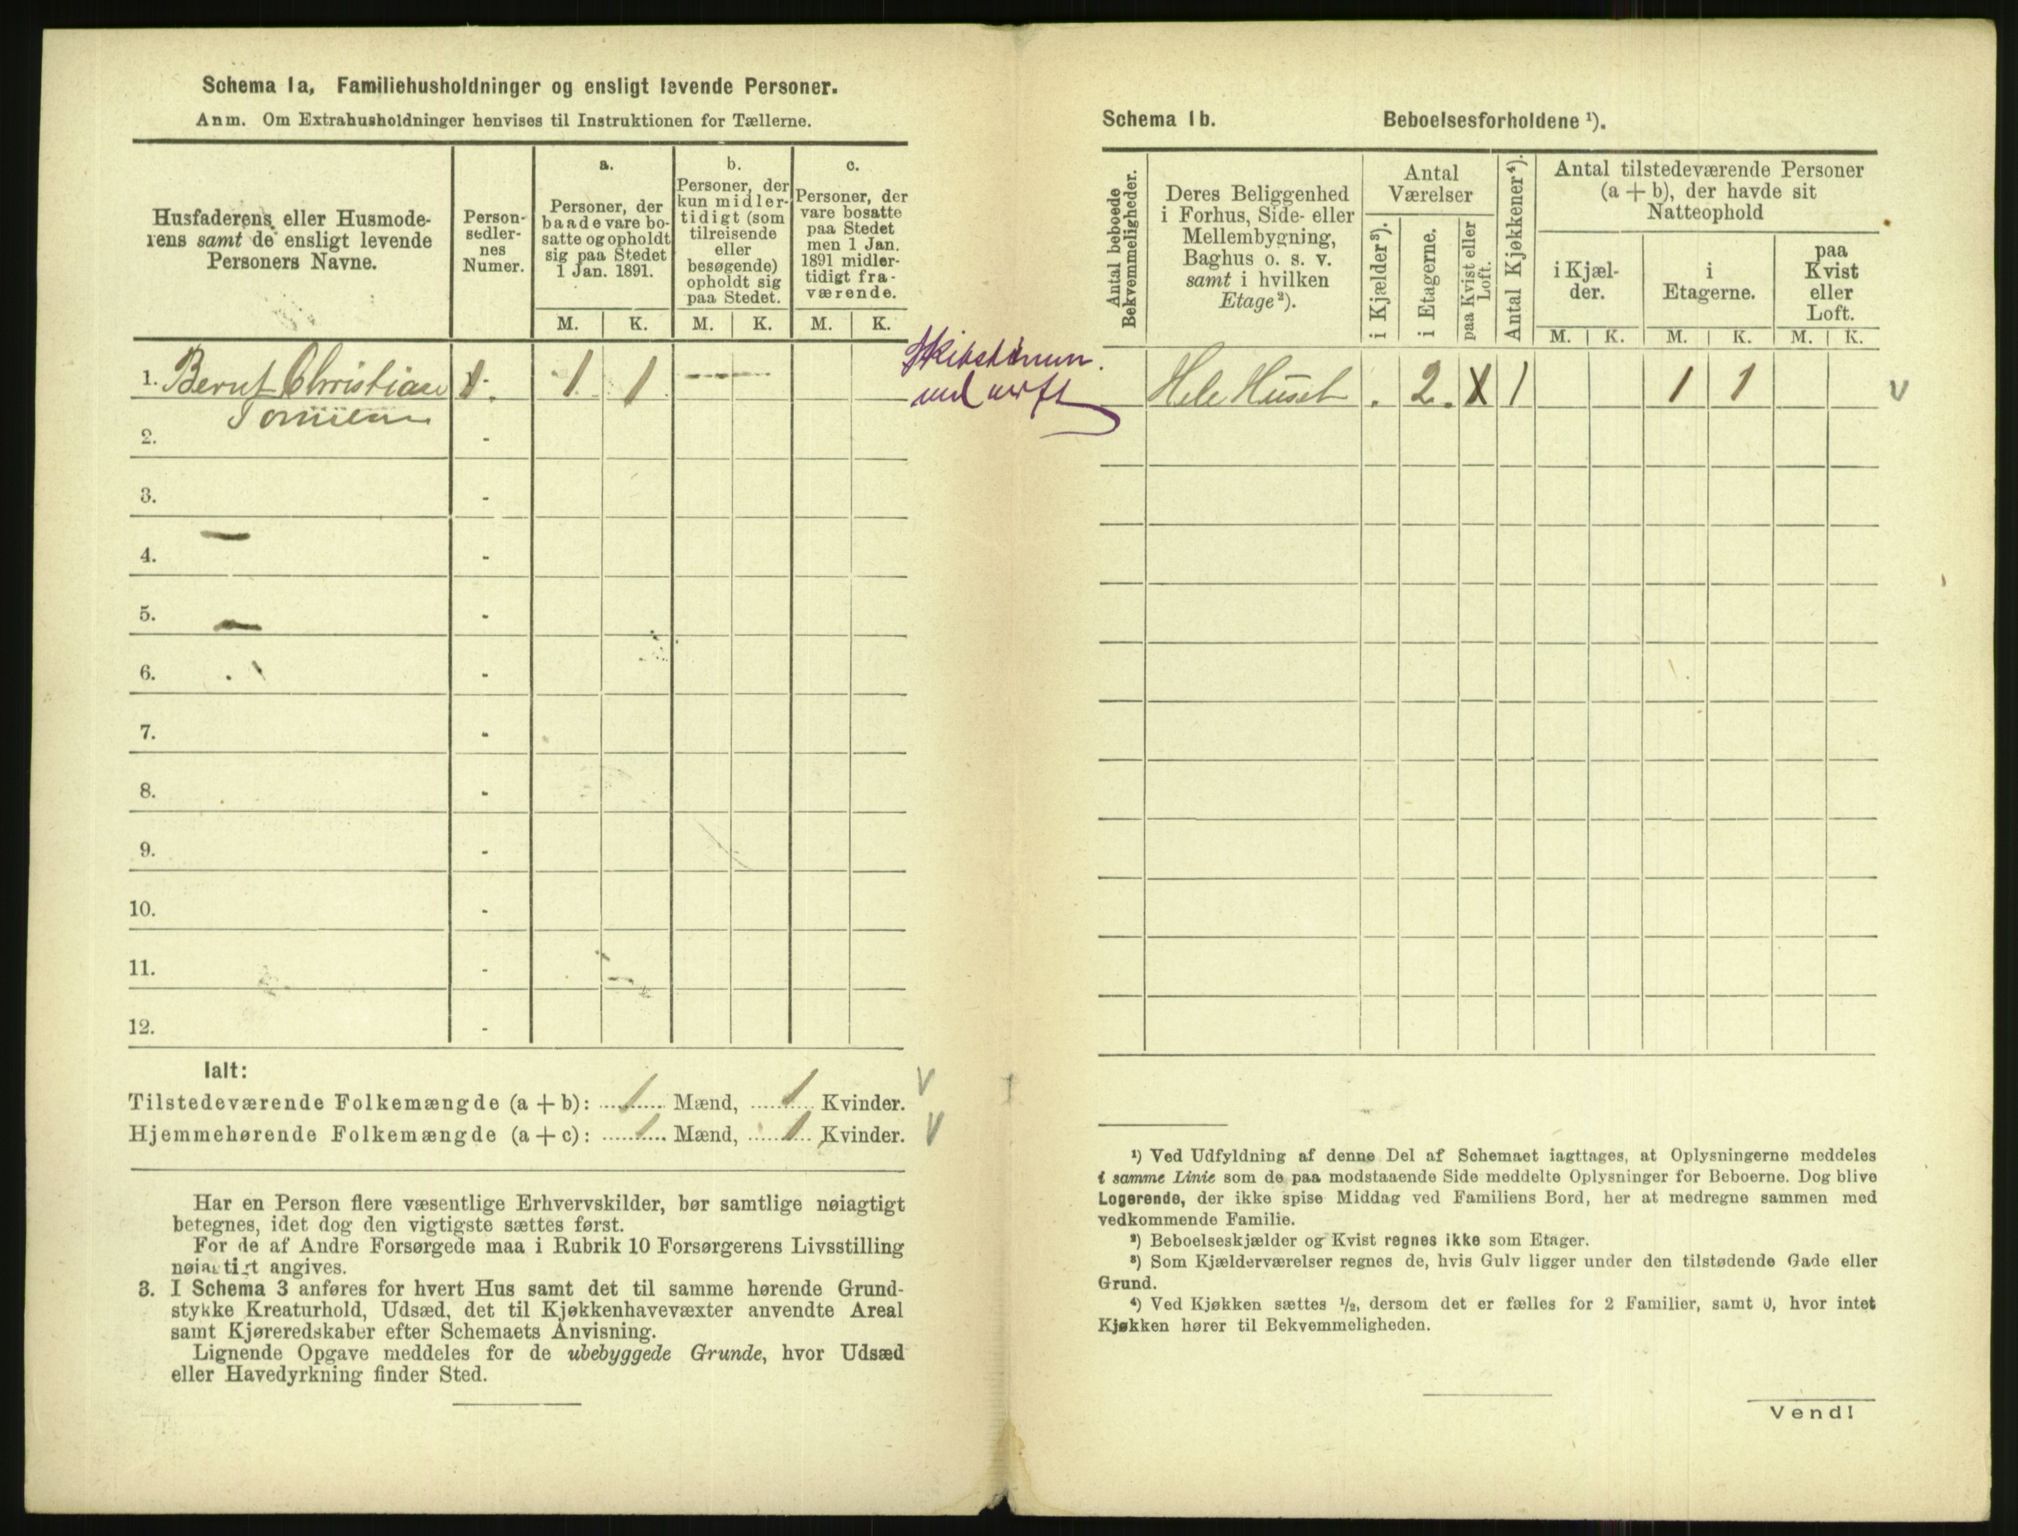 Schema 1a, Familiehusholdninger og ensligt levende Personer.
Anm. Om Extrahusholdninger henvises til Instruktionen for Tællerne.
Husfaderens eller Husmode-
rens samt de ensligt levende
Personers Navne.
Person-
sedler-
nes
Numer.
a.
Personer, der
baade vare bo-
satte og opholdt
sig paa Stedet
1 Jan. 1891.
b.
Personer, der
kun midler-
tidigt (som
tilreisende
eller
besøgende)
opholdt sig
paa Stedet.
c.
Personer, der
vare bosatte
paa Stedet
men 1 Jan.
1891 midler-
tidigt fra-
værende.
M. K. M. K. M. K.
1. Bernt Christian 1. 1 1
2. -
3. -
4. -
5. -
6. -
7. -
8. -
9. -
10. -
11. -
12. -
Ialt:
Tilstedeværende Folkemængde (a + b): 1 Mænd, 1 Kvinder.
Hjemmehørende Folkemængde (a + c): 1 Mænd, 1 Kvinder.
Har en Person flere væsentlige Erhvervskilder, bør samtlige nøiagtigt
betegnes, idet dog den vigtigste sættes først.
For de af Andre Forsørgede maa i Rubrik 10 Forsørgerens Livsstilling
nøiagtigt angives.
3. I Schema 3 anføres for hvert Hus samt det til samme hørende Grund-
stykke Kreaturhold, Udsæd, det til Kjøkkenhavevæxter anvendte Areal
samt Kjøreredskaber efter Schemaets Anvisning.
Lignende Opgave meddeles for de ubebyggede Grunde, hvor Udsæd
eller Havedyrkning finder Sted.
Schema 1b. Beboelsesforholdene ¹).
Antal beboede
Bekvemmeligheder.
Deres Beliggenhed
i Forhus, Side- eller
Mellembygning,
Baghus o. s. v.
samt i hvilken
Etage²).
Antal
Værelser
i Kjælder³).
i Etagerne.
paa Kvist eller
Loft.
Antal Kjøkkener⁴).
Antal tilstedeværende Personer
(a + b), der havde sit
Natteophold
i Kjæl-
der.
i
Etagerne.
paa
Kvist
eller
Loft.
M. K. M. K. M. K.
Hele Huset . 2. X 1 1 1
¹) Ved Udfyldning af denne Del af Schemaet iagttages, at Oplysningerne meddeles
i samme Linie som de paa modstaaende Side meddelte Oplysninger for Beboerne. Dog blive
Logerende, der ikke spise Middag ved Familiens Bord, her at medregne sammen med
vedkommende Familie.
²) Beboelseskjælder og Kvist regnes ikke som Etager.
³) Som Kjælderværelser regnes de, hvis Gulv ligger under den tilstødende Gade eller
Grund.
⁴) Ved Kjøkken sættes ½, dersom det er fælles for 2 Familier, samt 0, hvor intet
Kjøkken hører til Bekvemmeligheden.
Vend!